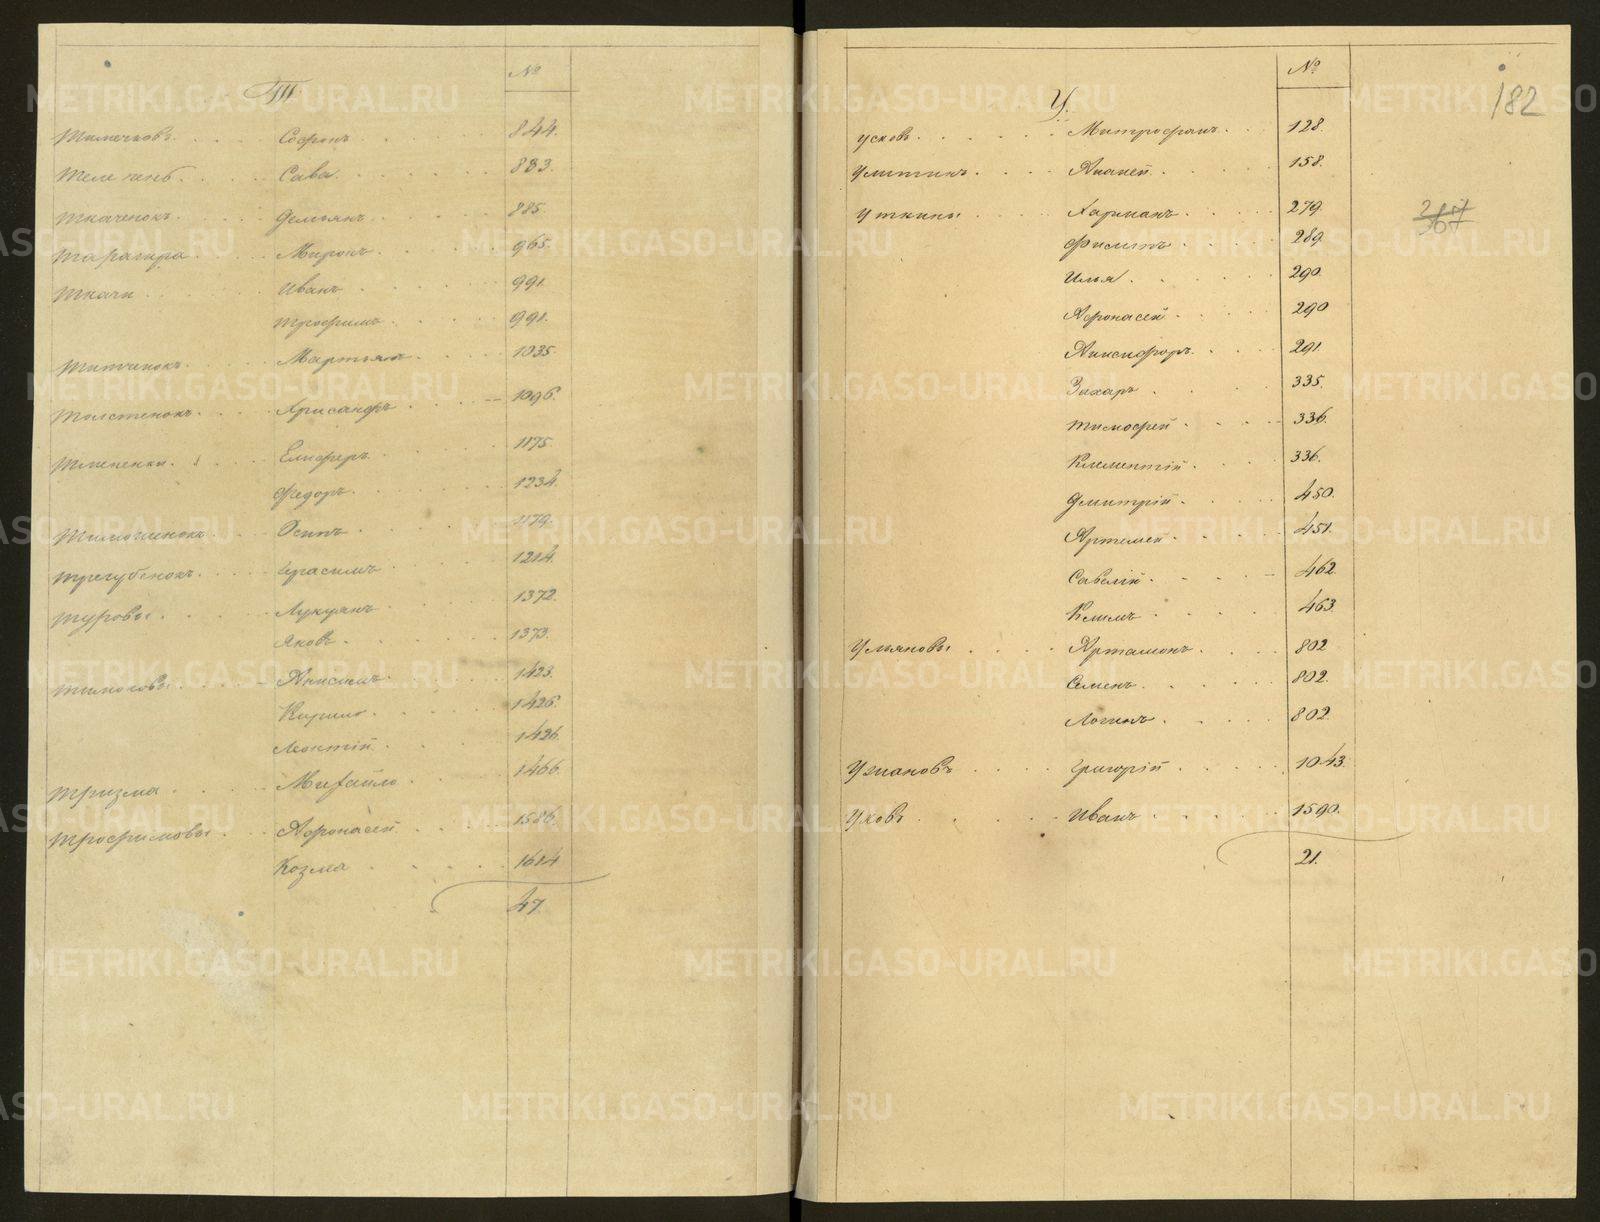 Т. №
Софонъ 844.
Сава 883.
Ткаченокъ Демьянъ 885.
Миронъ 965.
Ткачи Иванъ 991.
Трофимъ 991.
Титченокъ Мартьянъ 1035.
Толстенокъ Хрисанфъ 1096.
Елиферъ 1175.
Федоръ 1234.
Осипъ 1179.
Трегубенокъ Герасимъ 1214.
Туровы Лукьянъ 1372.
Яковъ 1373.
Анисимъ 1423.
Кирило 1426.
Леонтій 1426.
Тризма Михайло 1466.
Трофимовы Афонасей 1586.
Козма 1614
47.
У. № 182
Усковъ Митрофанъ 128.
Улитинъ Ананей 158.
Уткины Харманъ 279.
Филипъ 289.
Илья 290.
Афонасей 290
Анисифоръ 291.
Захаръ 335.
Тимофей 336.
Клементій 336.
Дмитрій 450.
Артемей 451.
Савелій 462.
Климъ 463.
Ульяновы Артамонъ 802
Семенъ 802.
Логинъ 802.
Григорій 1043.
Уковъ Иванъ 1590.
21.
METRIKI.GASO-URAL.RU